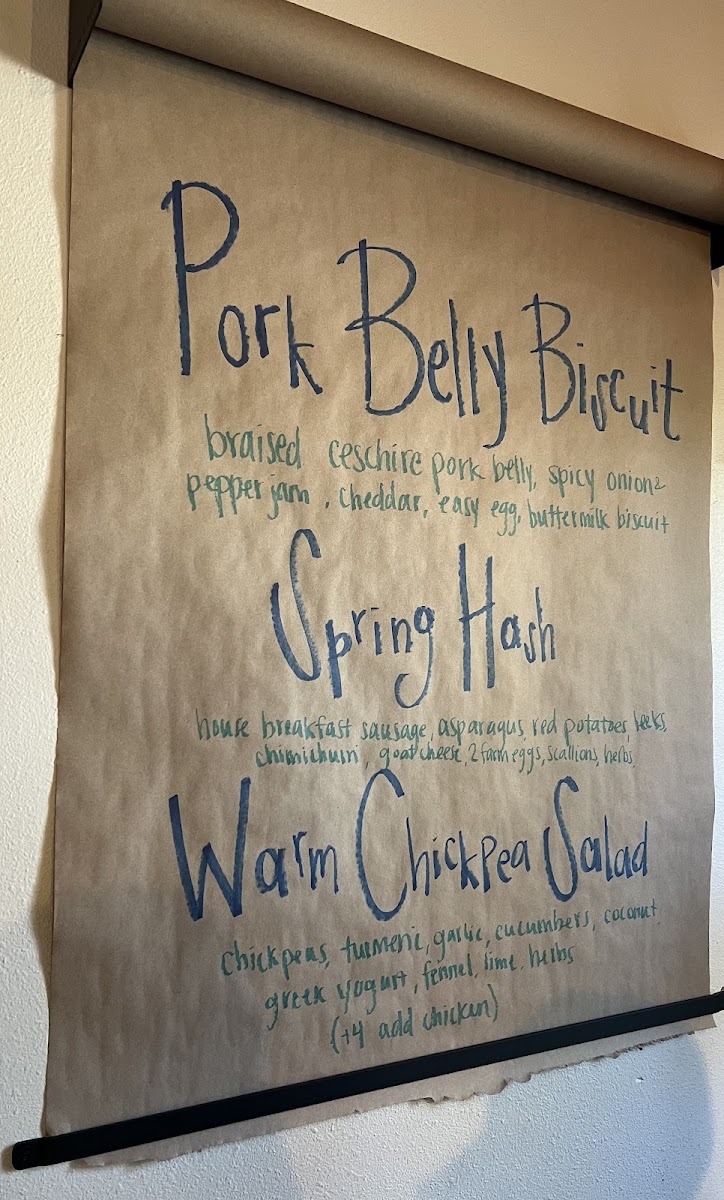 Pork Belly Biscuit
braised ceschire pork belly, spicy onion &
pepper jam, cheddar, easy egg, buttermilk biscuit
Spring Hash
house breakfast sausage, asparagus, red potatoes, leeks,
chimichurri, goat cheese, 2 farm eggs, scallions, herbs
Warm Chickpea Salad
chickpeas, turmeric, garlic, cucumbers, coconut
greek yogurt, fennel, lime, herbs
(+4 add chicken)